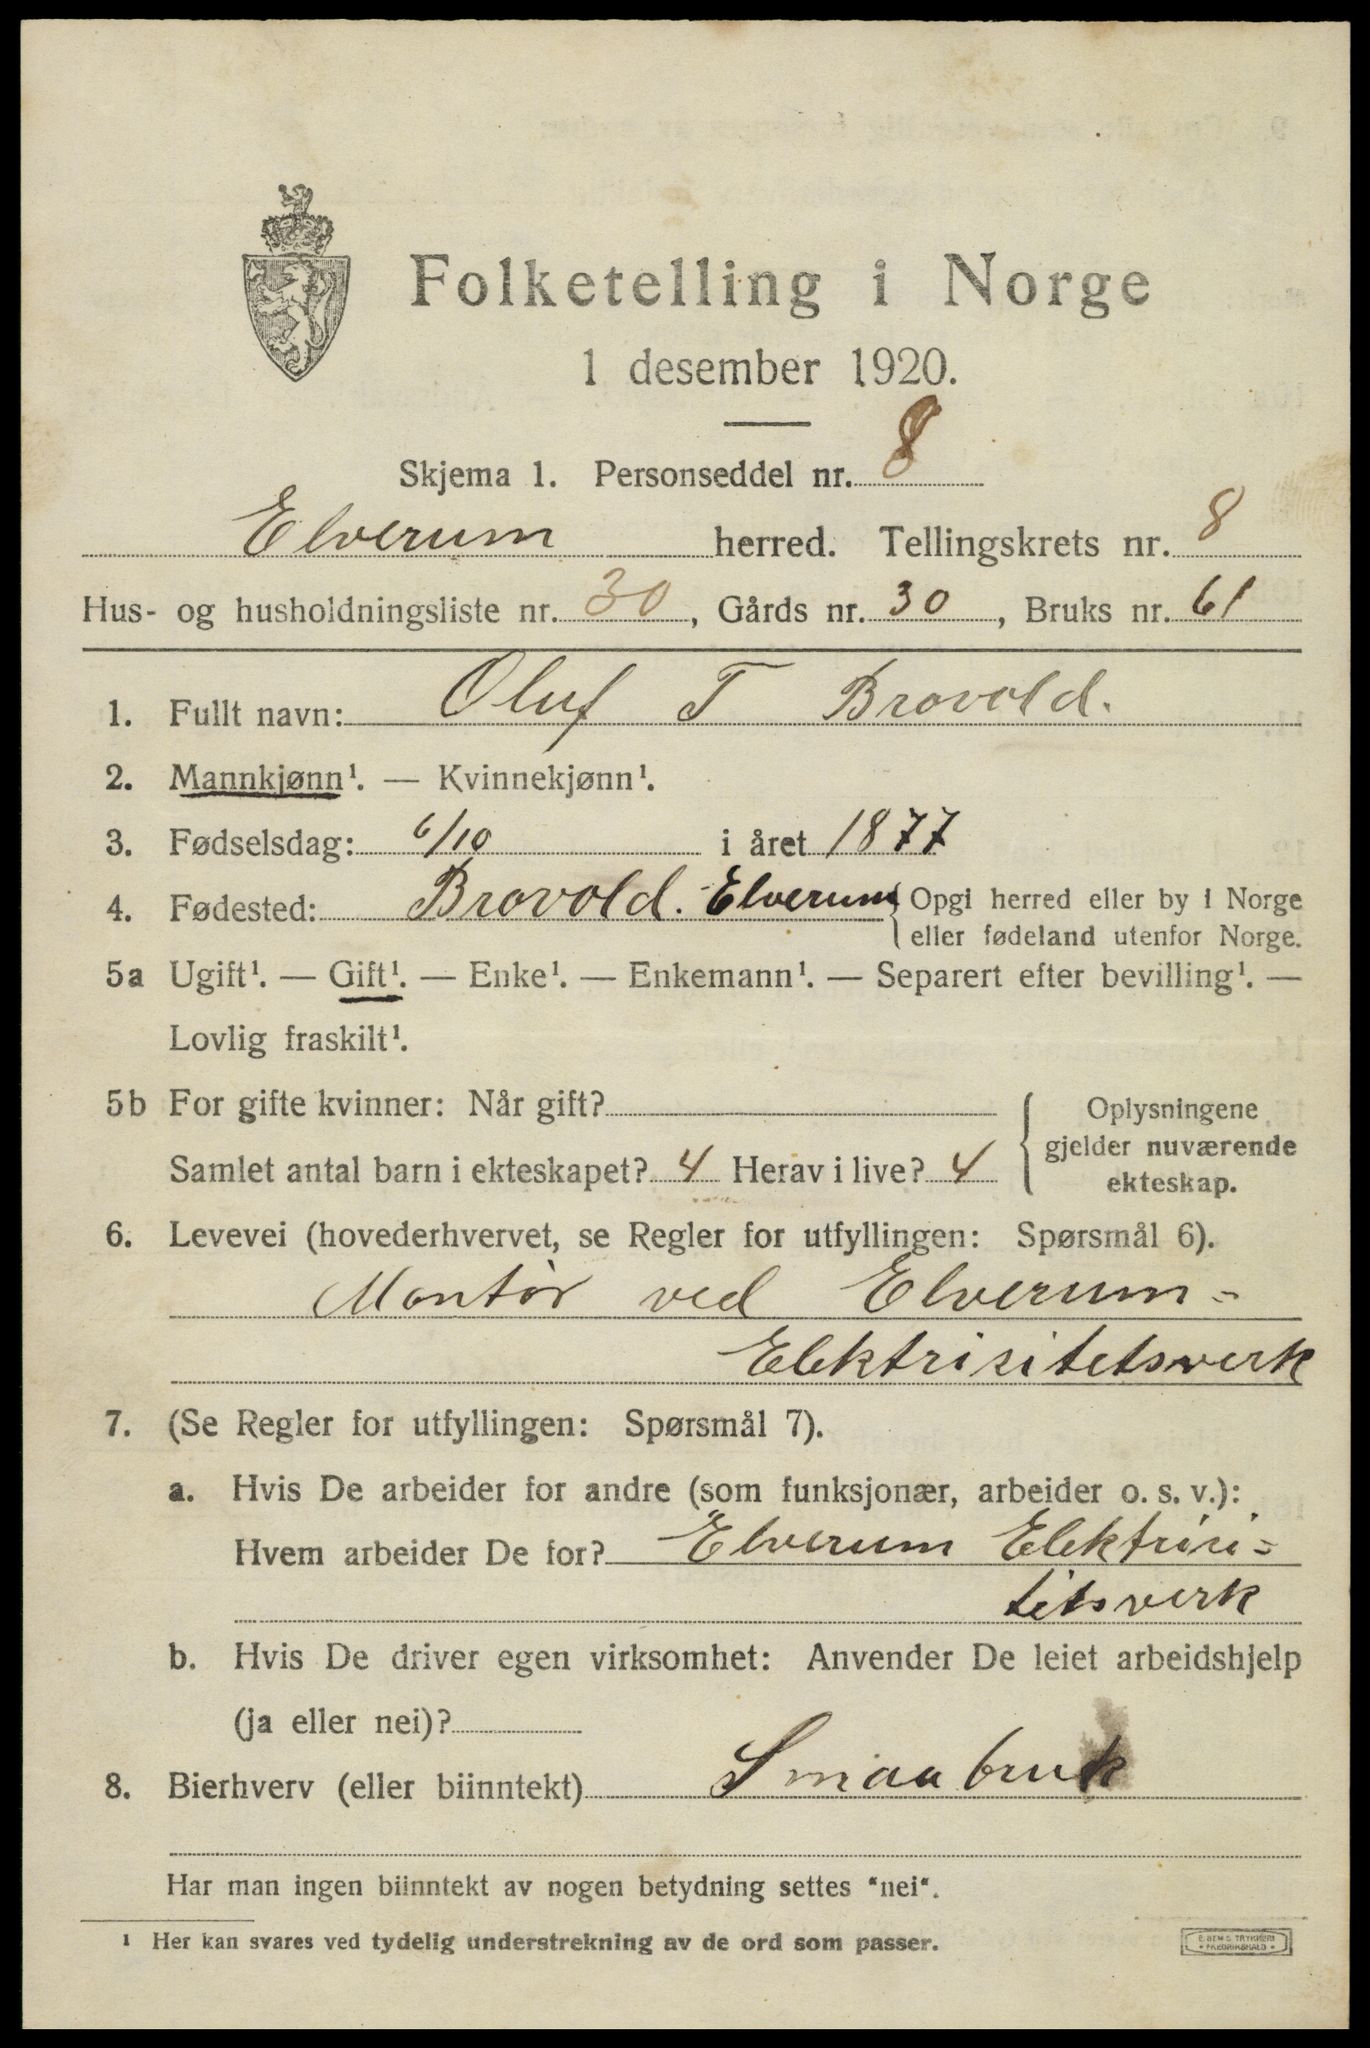 Folketelling i Norge
1 desember 1920.
Skjema 1. Personseddel nr. 8
Elverum herred. Tellingskrets nr. 8
Hus- og husholdningsliste nr. 30, Gårds nr. 30, Bruks nr. 61
1. Fullt navn: Oluf T Brovold.
2. Mannkjønn¹. — Kvinnekjønn¹.
3. Fødselsdag: 6/10 i året 1877
4. Fødested: Brovold. Elverum { Opgi herred eller by i Norge
eller fødeland utenfor Norge.
5a Ugift¹. — Gift¹. — Enke¹. — Enkemann¹. — Separert efter bevilling¹. —
Lovlig fraskilt¹.
5b For gifte kvinner: Når gift? { Oplysningene
gjelder nuværende
Samlet antal barn i ekteskapet? 4 Herav i live? 4 ekteskap.
6. Levevei (hovederhvervet, se Regler for utfyllingen: Spørsmål 6).
Montør ved Elverum-
Elektrisitetsverk
7. (Se Regler for utfyllingen: Spørsmål 7).
a. Hvis De arbeider for andre (som funksjonær, arbeider o. s. v.):
Hvem arbeider De for? Elverum Elektrisi-
tetsverk
b. Hvis De driver egen virksomhet: Anvender De leiet arbeidshjelp
(ja eller nei)?
8. Bierhverv (eller biinntekt) Smaabruk
Har man ingen biinntekt av nogen betydning settes "nei".
¹ Her kan svares ved tydelig understrekning av de ord som passer.